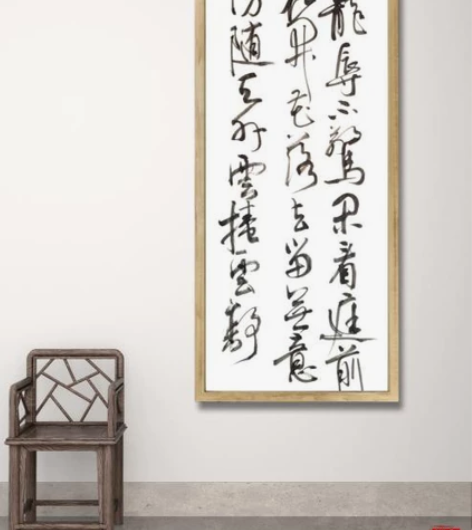 寵辱不驚閑看庭前
開花落去留無意
随天外雲捲雲舒